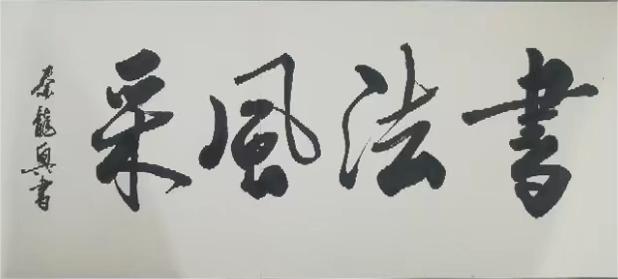 書法風采
秦龍興書